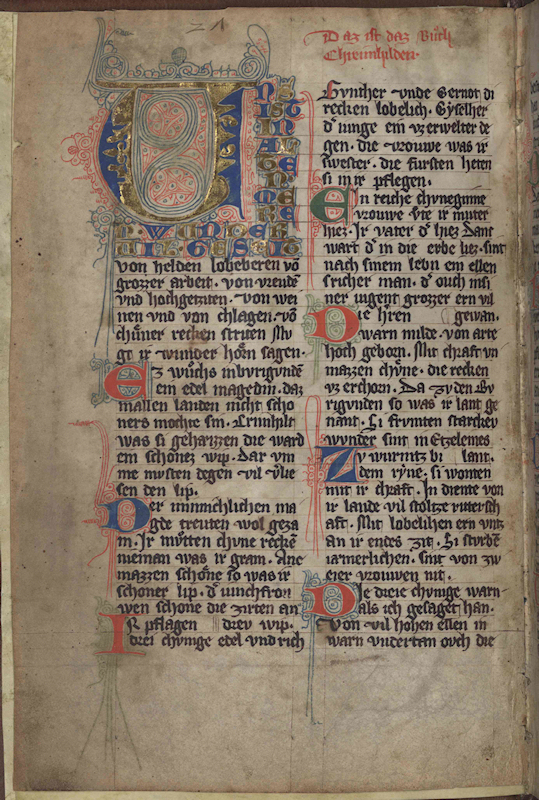 21
Daz ist daz Bůch
Chreimhilden
VNS
IST
IN
AL
TE
N
ME
RE
N WUNDER
VIL GESEIT
von helden lobeberen võ
grozzer arbeit. von vreudē
vnd hochgeziten. von wei
nen vnd von chlagen. võ
chůner recken striten Mv
gt ir wunder hôrn sagen.
Ez wůchs inburigunde
ein edel magedin. daz
in allen landen nicht scho
ners mochte sin. Crimhilt
was si geheizzen die ward
ein schônez wip. Dar vm
me mvsten degen vil v̂lie
sen den lip.
Der minnichlichen ma
gde treuten wol geza
m. Ir můtten chvne reckē
nieman was ir gram. Ane
mazzen schône so was ir
schoner lip. d' iunchfrow
wen schone die zirten an
Ir pflagen drev wip.
drei chvnige edel vnd rich
Gvnther vnde Gernot di
recken lobelich. Gyselher
d' iunge ein vz erwelter de
gen. die vrouwe was ir
swester. die fursten heten
si in ir pflegen.
Ein reiche chvneginne
vrouwe Vte ir muter
hiez. Ir vater d' hiez Dant
wart d' in die erbe liez. sint
nach sinem lebn ein ellen
tricher man. d' ouch in si
ner iugent grozzer ern vil
Die hren gewan.
warn milde. von arte
hoch geborn. Mit chraft vn
mazzen chvne. die recken
vz erchorn. Da zv den Bv
rigvnden so was ir lant ge
nant. Si frvmten starckev
wvnder sint in Etzelemes
Zv wurmtz bi lant.
dem ryne. si wonten
mit ir chraft. In diente von
ir lande vil stoltze rittersch
aft. Mit lobelihen ern vntz
an ir endes zit. Si sturbē
iæmerlichen. sint von zw
eier vrouwen nit.
Die dreie chvnige warn
als ich gesaget han.
von vil hohen ellen in
warn vndertan ovch die